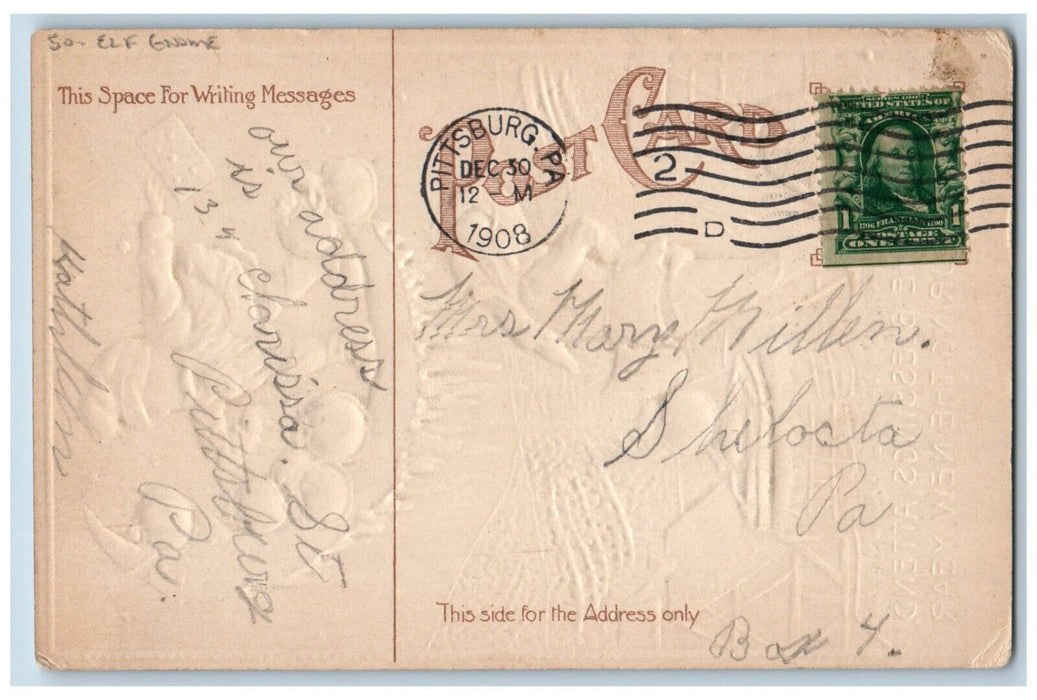 50- ELF GNOME
This Space For Writing Messages
our address
is
13 " clarissa. St
Pittsburg
Pa.
Kathleen
POST CARD
PITTSBURG, PA
DEC 30
12 M
1908
2
D
UNITED STATES OF
AMERICA
1706 FRANKLIN 1790
POSTAGE
1 ONE CENT 1
Mrs Mary Millen.
Shelocta
Pa
Box 4.
This side for the Address only